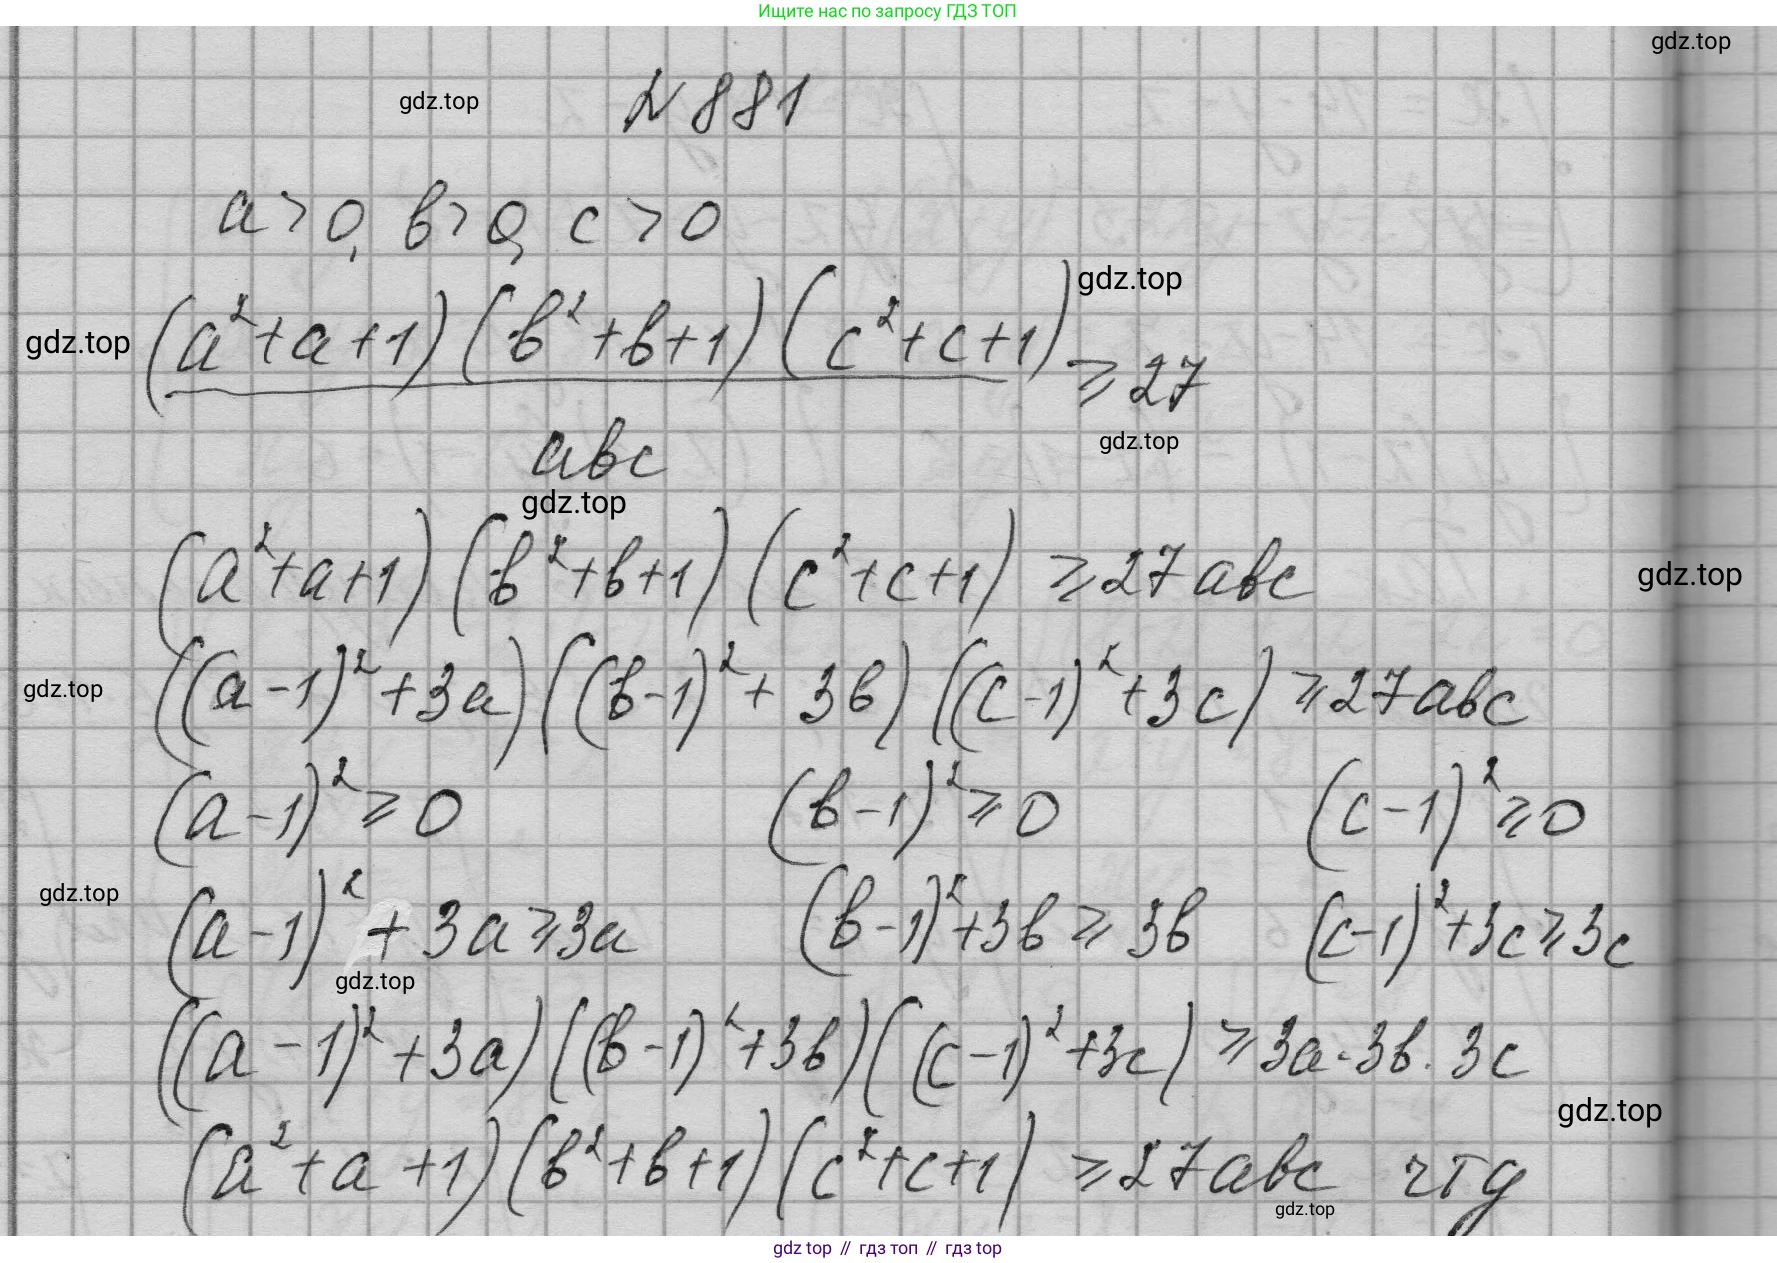 Ищите нас по запросу ГДЗ ТОП
gdz.top
gdz.top
№ 881
a > 0, в > 0, c > 0
gdz.top
gdz.top
(a² + a + 1)(в² + в + 1)(c² + c + 1)
⩾ 27
авс
gdz.top
gdz.top
(a² + a + 1)(в² + в + 1)(c² + c + 1) ⩾ 27 авс
gdz.top
((a - 1)² + 3a)((в - 1)² + 3в)((c - 1)² + 3c) ⩾ 27 авс
gdz.top
(a - 1)² ⩾ 0 (в - 1)² ⩾ 0 (c - 1)² ⩾ 0
gdz.top
(a - 1)² + 3a ⩾ 3a (в - 1)² + 3в ⩾ 3в (c - 1)² + 3c ⩾ 3c
gdz.top
((a - 1)² + 3a)((в - 1)² + 3в)((c - 1)² + 3c) ⩾ 3a · 3в · 3c
gdz.top
(a² + a + 1)(в² + в + 1)(c² + c + 1) ⩾ 27 авс чтд
gdz.top
gdz top // гдз топ // gdz top